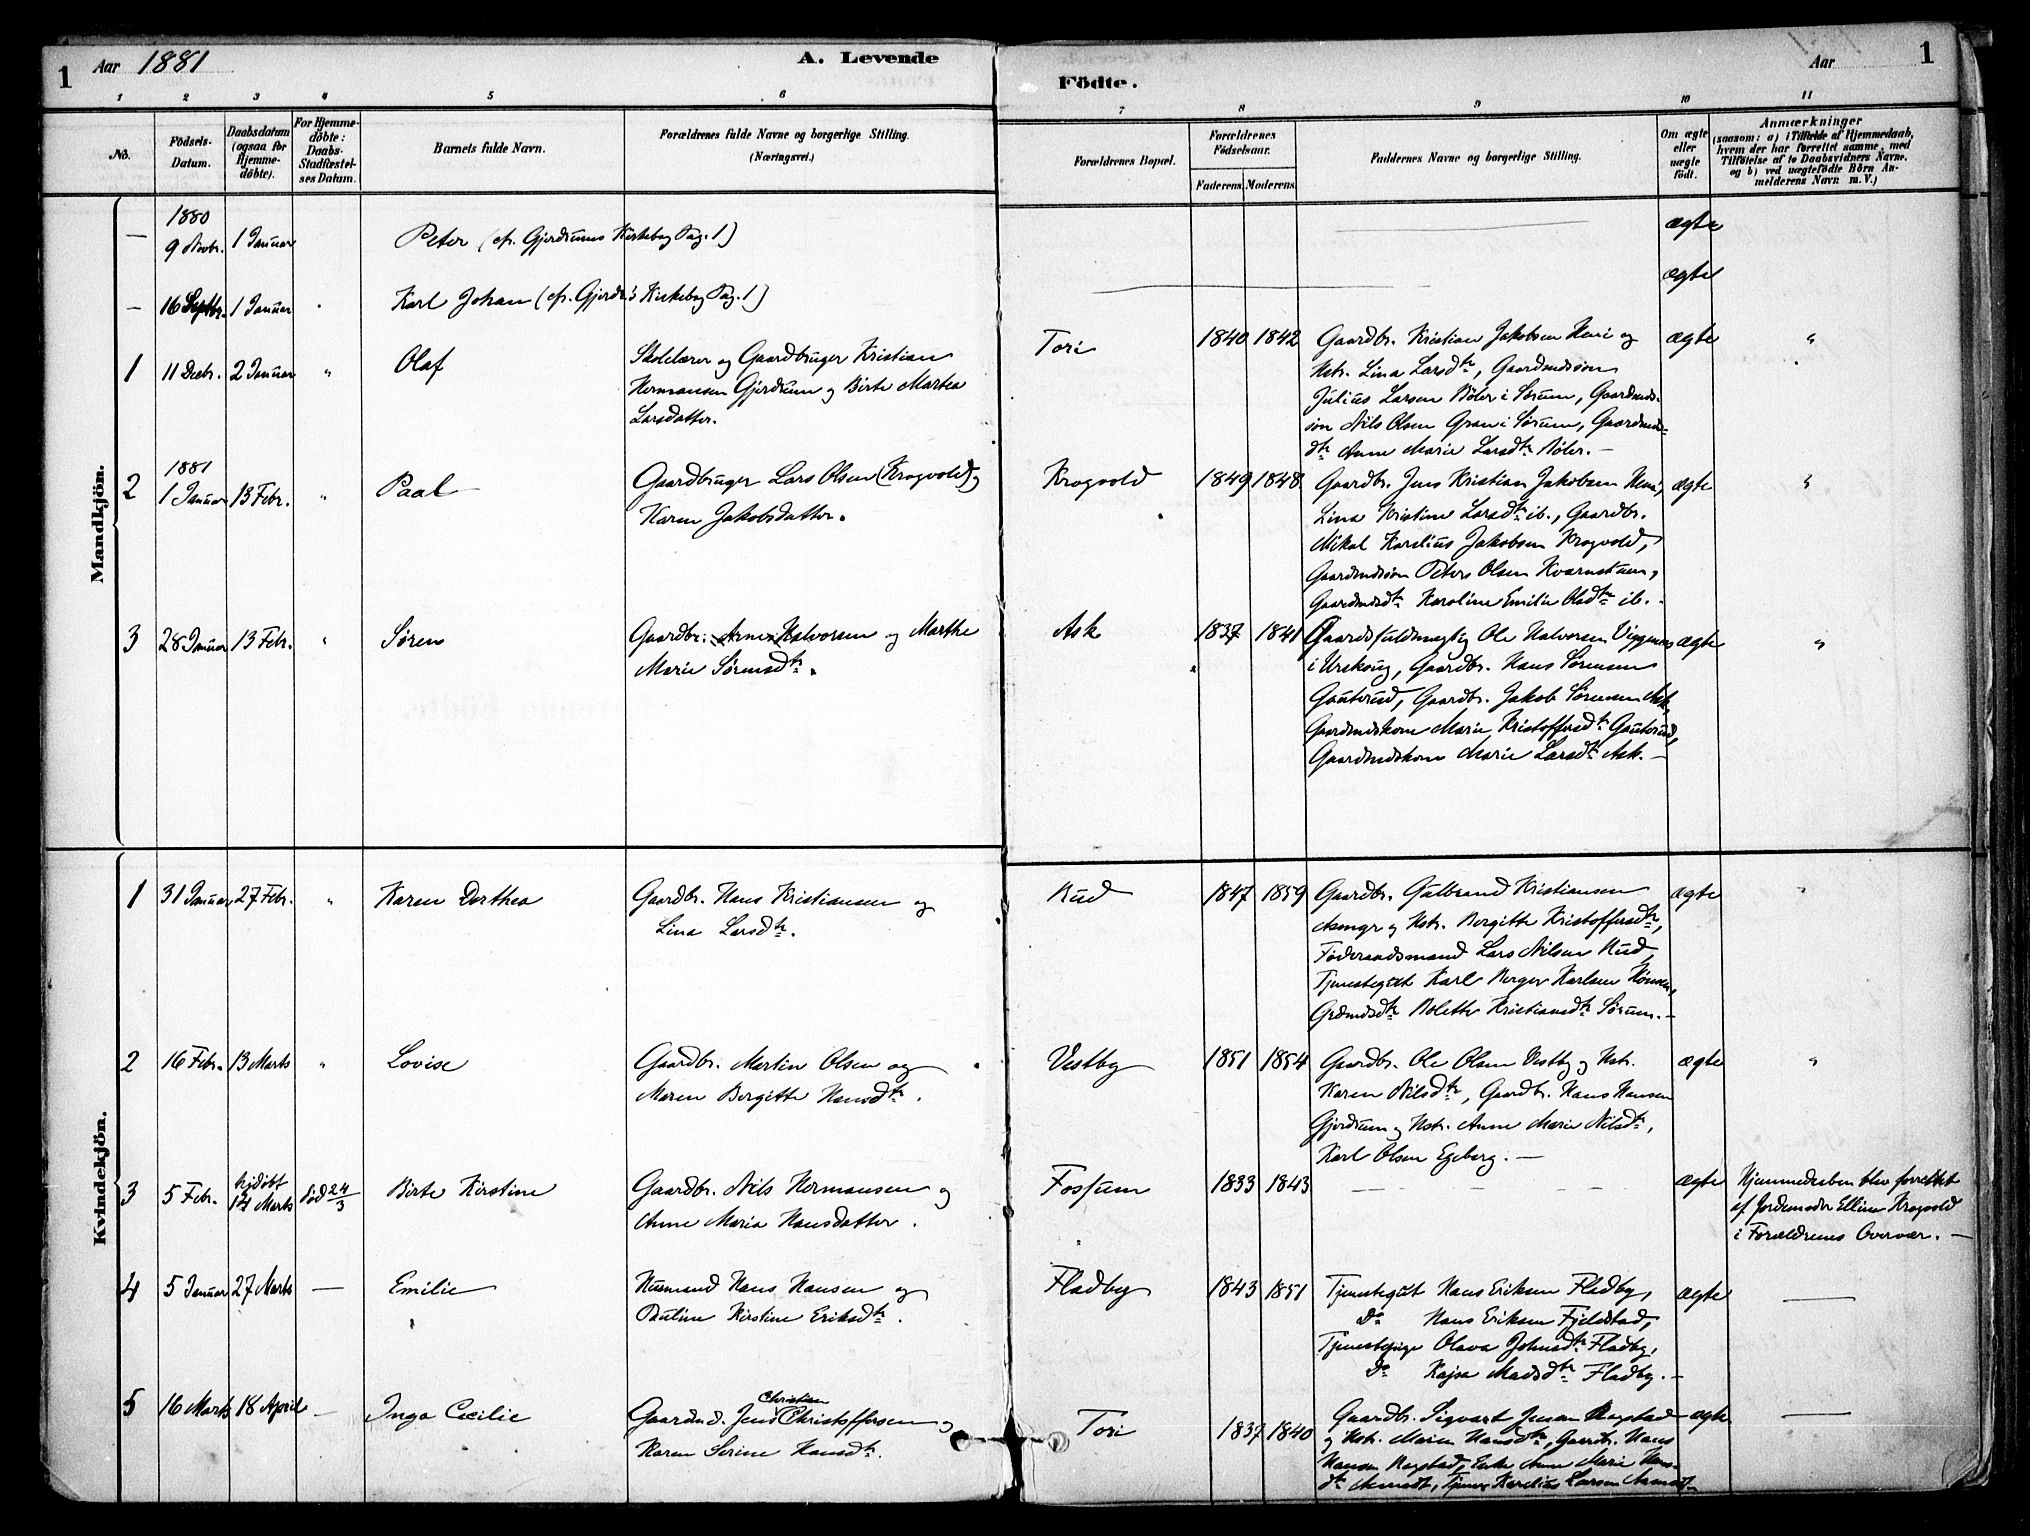 1
Aar 1881
A. Levende
Födte.
Aar
1
1 2 3 4 5 6 7 8 9 10 11
No.
Födsels-
Datum.
Daabsdatum
(ogsaa for
Hjemme-
döbte).
For Hjemme-
döbte:
Daabs-
Stadfæstel-
ses Datum.
Barnets fulde Navn.
Forældrenes fulde Navne og borgerlige Stilling.
(Næringsvei.)
Forældrenes Bopæl.
Forældrenes
Födselsaar.
Faderens. Moderens.
Faddernes Navne og borgerlige Stilling.
Om ægte
eller
uægte
födt.
Anmærkninger
(saasom: a) i Tilfælde af Hjemmedaab,
hvem der har forrettet samme, med
Tilföielse af to Daabsvidners Navne.
og b) ved uægtefödte Börn An-
melderens Navn m. V.)
Mandkjön.
— 1880
9 Novbr. 1 Januar Peter (cfr. Gjerdrums Kirkebog Pag. 1) ægte
— 16 Septbr. 1 Januar Karl Johan (cfr. Gjerdr.s Kirkebog Pag. 1) ægte
1 11 Decbr. 2 Januar " Olaf
Skolelærer og Gaardbruger Kristian
Hermansen Gjerdrum og Birte Marthea
Larsdatter.
Tori 1840 1842
Gaardbr. Kristian Jakobsen Heni og
Hstr. Lina Larsdtr, Gaardmdssøn
Julius Larsen Bøler i Sørum, Gaardmds-
søn Nils Olsen Gran i Sørum, Gaardmds-
dtr Anne Marie Larsdtr Bøler. —
ægte "
2 1881
1 Januar 13 Febr. " Paal
Gaardbruger Lars Olsen (Krogvold) og
Karen Jakobsdatter.
Krogvold 1849 1848
Gaardbr. Jens Kristian Jakobsen Heni,
Lina Kristine Larsdtr ib., Gaardbr.
Mikal Karelius Jakobsen Krogvold,
Gaardmdssøn Peters Olsen Kvernstuen,
Gaardmdsdtr Karoline Emilie Olsdtr ib. -
ægte "
3 28 Januar 13 Febr. " Søren
Gaardbr. Arne Halvorsen og Marthe
Marie Sørensdtr.
Ask 1837 1841
Gaardsfuldmægtig Ole Halvorsen
i Urskoug, Gaardbr. Hans Sørensen
Gauterud, Gaardbr. Jakob Sørensen Ask,
Gaardmdskone Marie Kristoffersdtr Gauterud,
Gaardmdskone Marie Larsdtr Ask. —
ægte "
Kvindekjön.
1 31 Januar 27 Febr. " Karen Dorthea
Gaardbr. Hans Kristiansen og
Lina Larsdtr.
Rud 1847 1859
Gaardbr. Gulbrand Kristiansen
Asmyr og Hstr. Bergitte Kristoffersdtr,
Føderaadsmand Lars Nilsen Rud,
Tjenestegut Karl Berger Karlsen
Grdmdsdtr Bolette Kristiansdtr Sørum. —
ægte "
2 16 Febr. 13 Marts " Lovise
Gaardbr. Martin Olsen og
Maren Bergitte Hansdtr.
Vestby 1851 1854
Gaardbr. Ole Olsen Vestby og Hstr.
Karen Nilsdtr, Gaardbr. Hans Hansen
Gjerdrum og Hstr. Anne Marie Nilsdtr,
Karl Olsen Egeberg. —
ægte "
3 5 Febr. hjdöbt
14 Marts död 24/3 Birte Kirstine
Gaardbr. Nils Hermansen og
Anne Maria Hansdatter.
Fossum 1833 1843 — — — — ægte
Hjemmedaaben blev forrettet
af Jordemoder Elline Krogvold
i Forældrenes Overvær. —
4 5 Januar 27 Marts — Emilie
Husmand Hans Hansen og
Pauline Kirstine Eriksdtr.
Fladby 1843 1851
Tjenestegut Hans Eriksen Fladby,
Do Hans Eriksen Fjeldstad,
Tjenestepige Olava Johnsdtr Fladby,
Do Kajsa Madsdtr Fladby. —
ægte —
5 16 Marts 18 April — Inga Cecilie
Gaardmd. Jens Christian Christoffersen og
Karen Serine Hansdtr.
Tori 1837 1840
Gaardbr. Sigvart Jensen Ragstad
og Hstr. Maren Hansdtr, Gaardbr. Hans
Hansen Ragstad, Enke Anne Marie Hans-
dtr Asmadt, Tjener Karelius Larsen Asmadt
ægte —